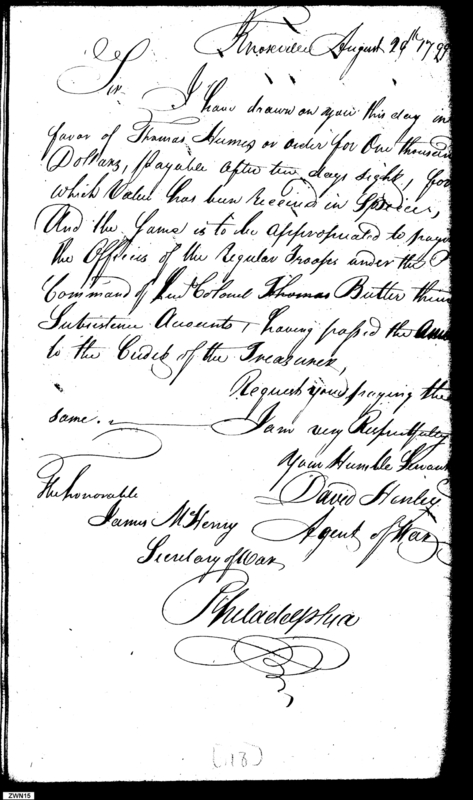 Knoxville August 29th 1799
Sir
I have drawn on you this day in
favor of Thomas Humes or order for One thousand
Dollars, payable after ten days sight, for
which Value has been received in Specie,
And the Same is to be appropriated to paying
the Officers of the Regular Troops under the
Command of Lieut Colonel Thomas Butler their
Subsistence Accounts, having passed the
to the Credit of the Treasurer,
Request your paying the
same.
I am very Respectfully
Your Humble Servant
David Henley
Agent of War
The honorable
James McHenry
Secretary of War
Philadelphia
(18)
ZWN15